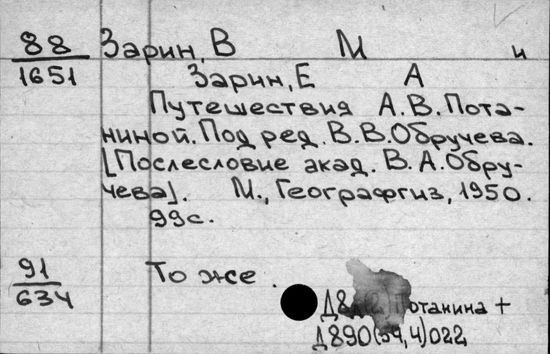 88 Зарин, В М и
1651 Зарин, Е А
Путешествия А. В. Пота-
ниной. Под ред. В. В. Обручева.
[Послесловие акад. В. А. Обру-
чева]. М., Географгиз, 1950.
99 с.
91 То же.
634
Потанина +
Д890(54,4)022